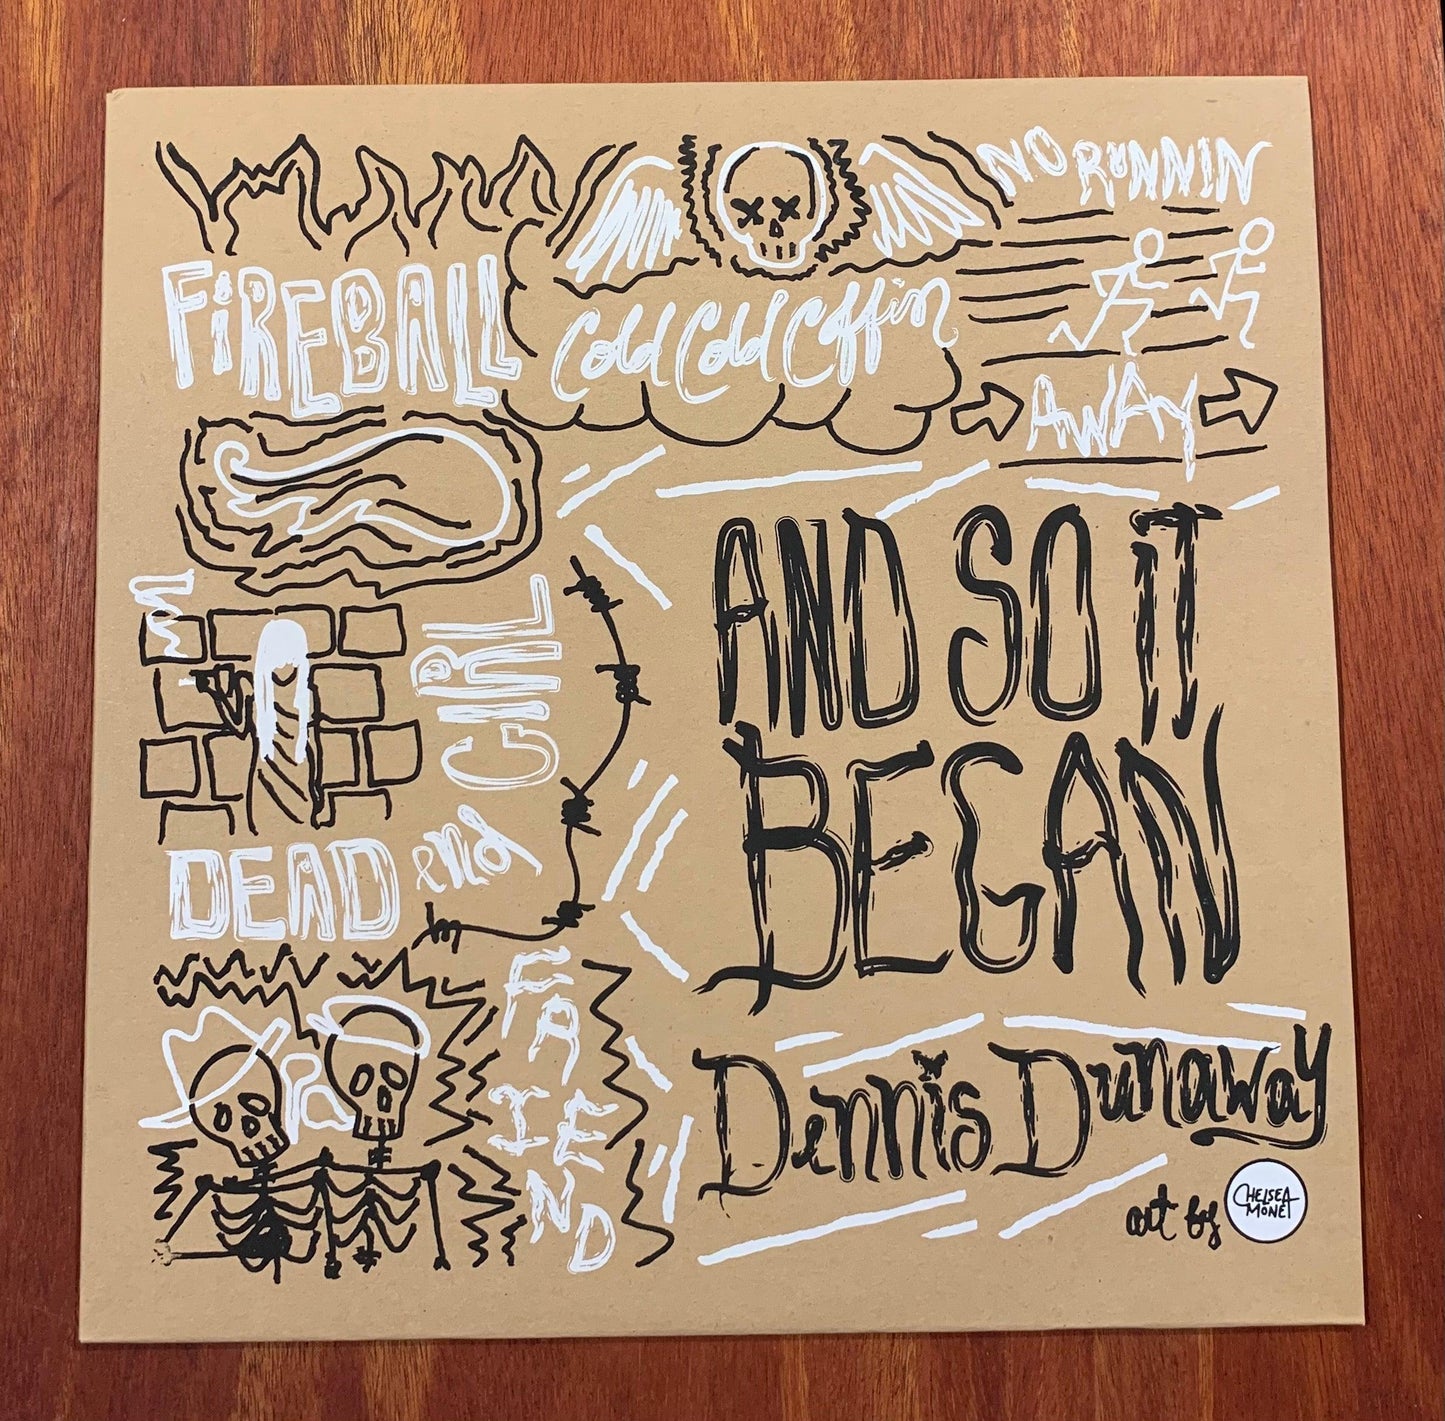 FiREBALL
Cold Cold Coffin
NO RUNNIN
AWAY
DEAD end
GIRL
AND SO IT
BEGAN
FRIEND
Dennis Dunaway
art by
CHELSEA
MONET